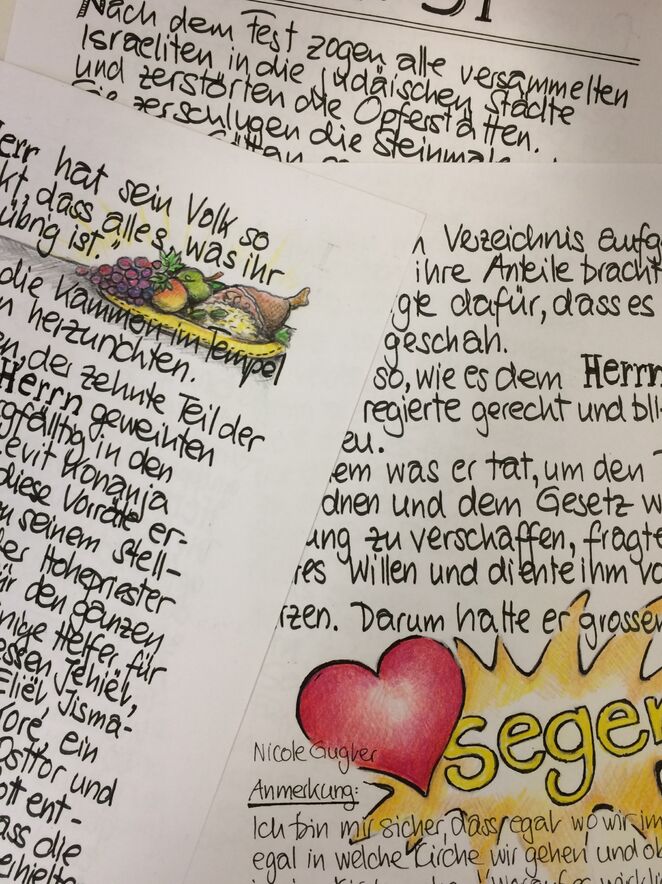 Nach dem Fest zogen alle versammelten
Israeliten in die judäischen Städte
und zerstörten die Opferstätten.
Sie zerschlugen die Steinmale
Herr hat sein Volk so
kt, dass alles, was ihr
übrig ist."
die Kammern im Tempel
n herzurichten.
en, der zehnte Teil der
Herrn geweihten
rgfältig in den
Levit Konanja
diese Vorräte er-
zu seinem Stell-
der Hohepriester
ür den ganzen
inige Helfer für
essen Jehiël,
Eliël, Jisma-
Kore, ein
Osttor und
ott ent-
ass die
erhielte
n Verzeichnis aufg
ihre Anteile bracht
gte dafür, dass es
geschah.
so, wie es dem Herrn
regierte gerecht und bli
eu.
em was er tat, um den T
dnen und dem Gesetz w
ung zu verschaffen, fragte
res Willen und diente ihm vo
rzen. Darum hatte er grossen
segen
Nicole Gugger
Anmerkung:
Ich bin mir sicher, dass egal wo wir im
egal in welche Kirche wir gehen und ob